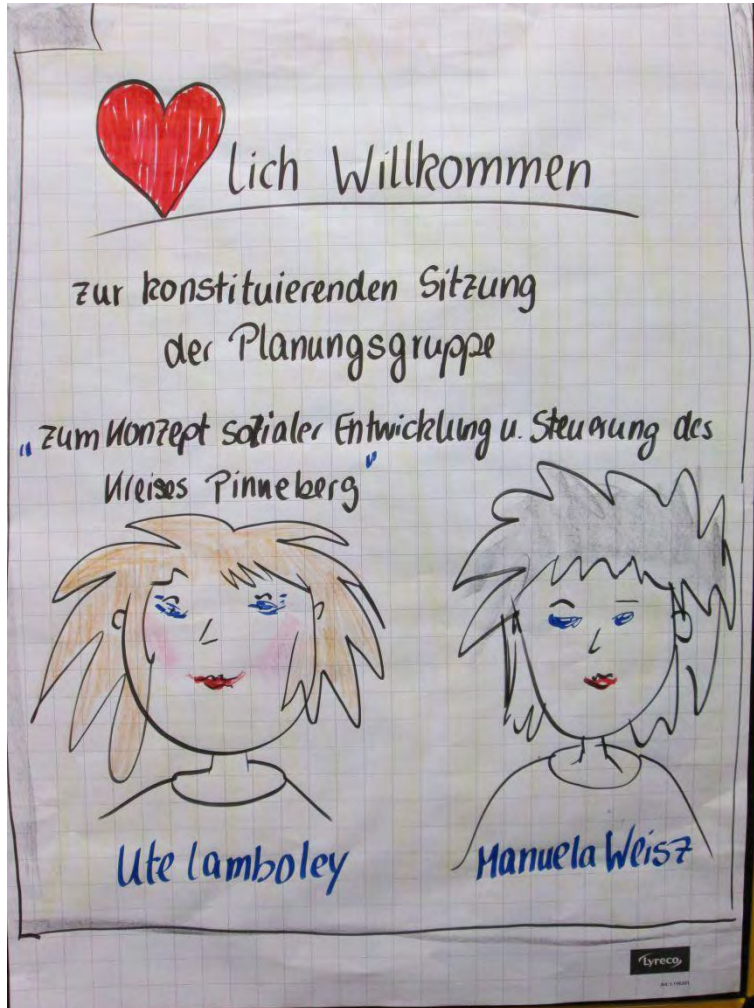 lich Willkommen
zur konstituierenden Sitzung
der Planungsgruppe
"zum Konzept sozialer Entwicklung u. Steuerung des
Kreises Pinneberg"
Ute Lamboley
Manuela Weisz
Lyreco